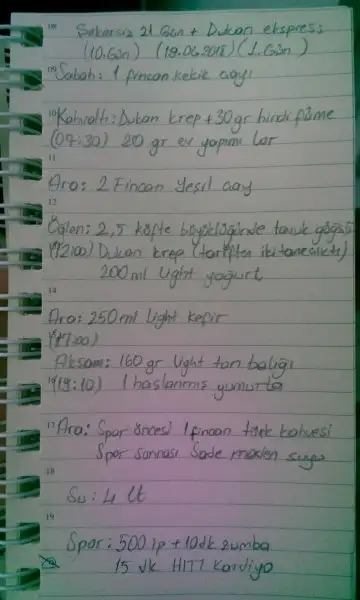 Şekersiz 21 Gün + Dukan ekspress
(10.Gün) (19.06.2018) (1.Gün)
09 Sabah: 1 fincan kekik çayı
10 Kahvaltı: Dukan krep + 30 gr hindi füme
(07:30) 20 gr ev yapımı lor
11
Ara: 2 Fincan Yeşil çay
12
Öğlen: 2,5 köfte büyüklüğünde tavuk göğsü
(12:00) Dukan krep (tariften iki tane çıktı)
200 ml light yoğurt
14
Ara: 250 ml light kefir
(17:00)
Akşam: 160 gr light ton balığı
16 (19:10) 1 haşlanmış yumurta
17 Ara: Spor öncesi 1 fincan türk kahvesi
Spor sonrası Sade maden suyu
18
Su: 4 lt
19
Spor: 500 ip + 10dk zumba
15 dk HIIT Kardiyo